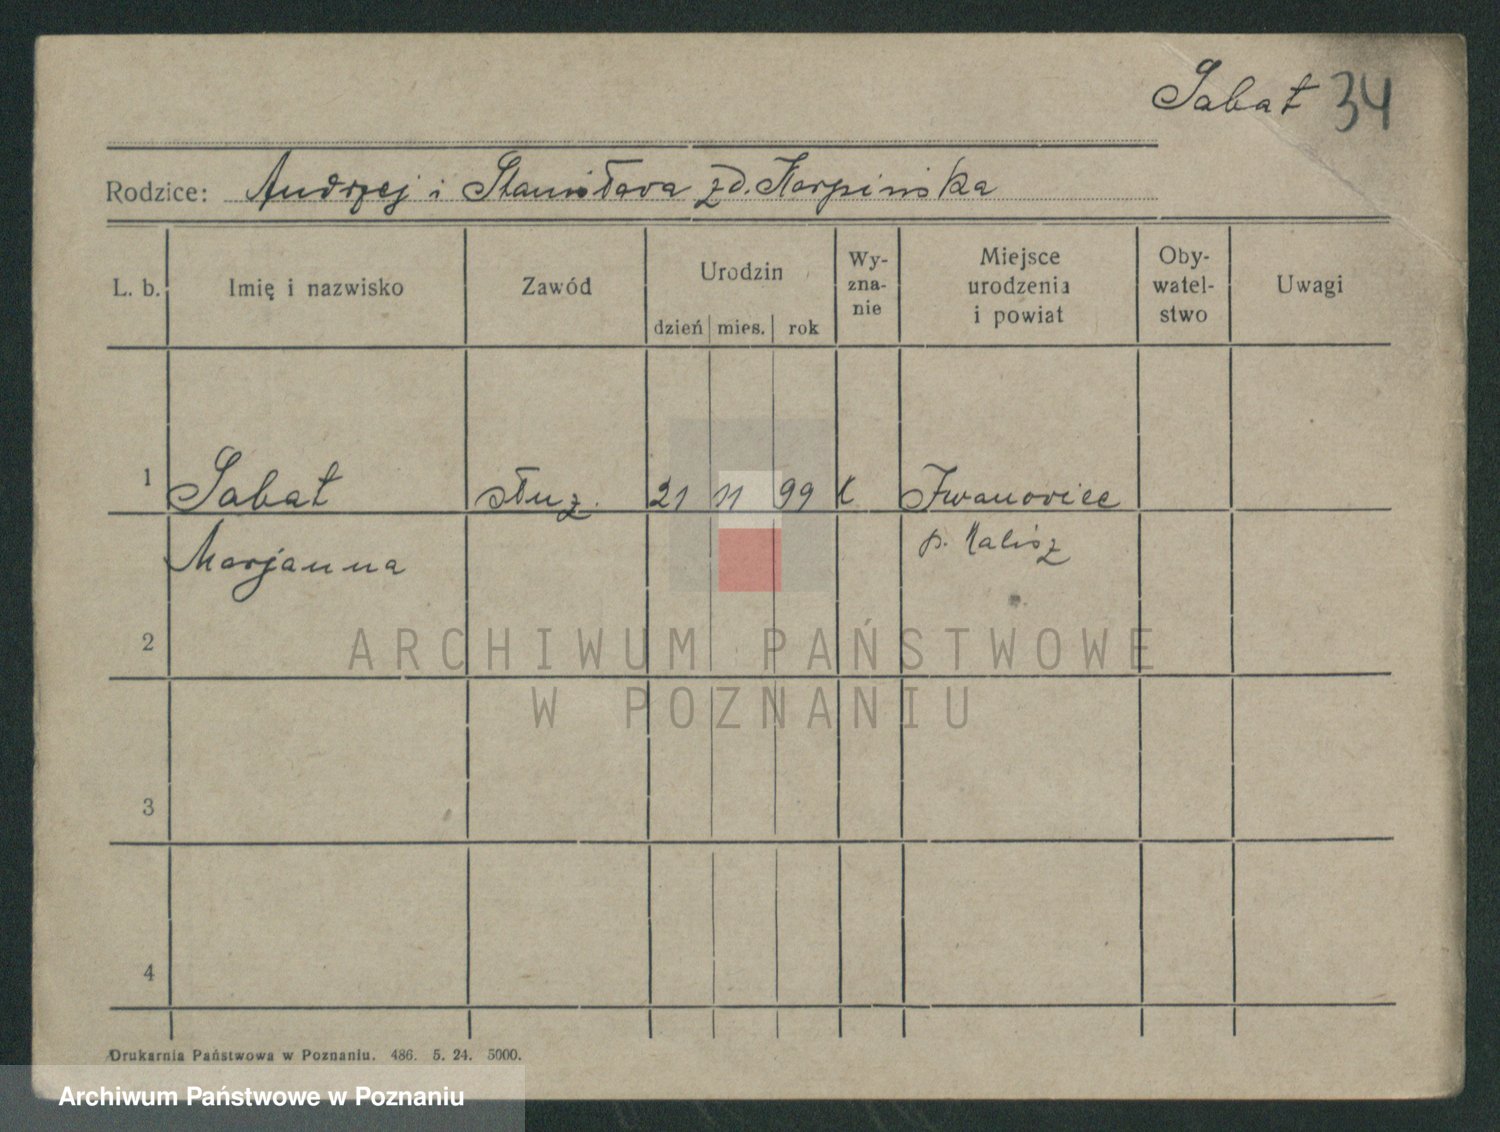 Sabat 34
Rodzice: Andrzej i Stanisława zd. Karpińska
L. b. Imię i nazwisko Zawód Urodzin dzień mies. rok Wy-zna-nie Miejsce urodzenia i powiat Oby-watel-stwo Uwagi
1 Sabat służ. 21 11 99 k Iwanowice
Marjanna p. Kalisz
2
ARCHIWUM PAŃSTWOWE
W POZNANIU
3
4
Drukarnia Państwowa w Poznaniu. 486. 5. 24. 5000.
Archiwum Państwowe w Poznaniu